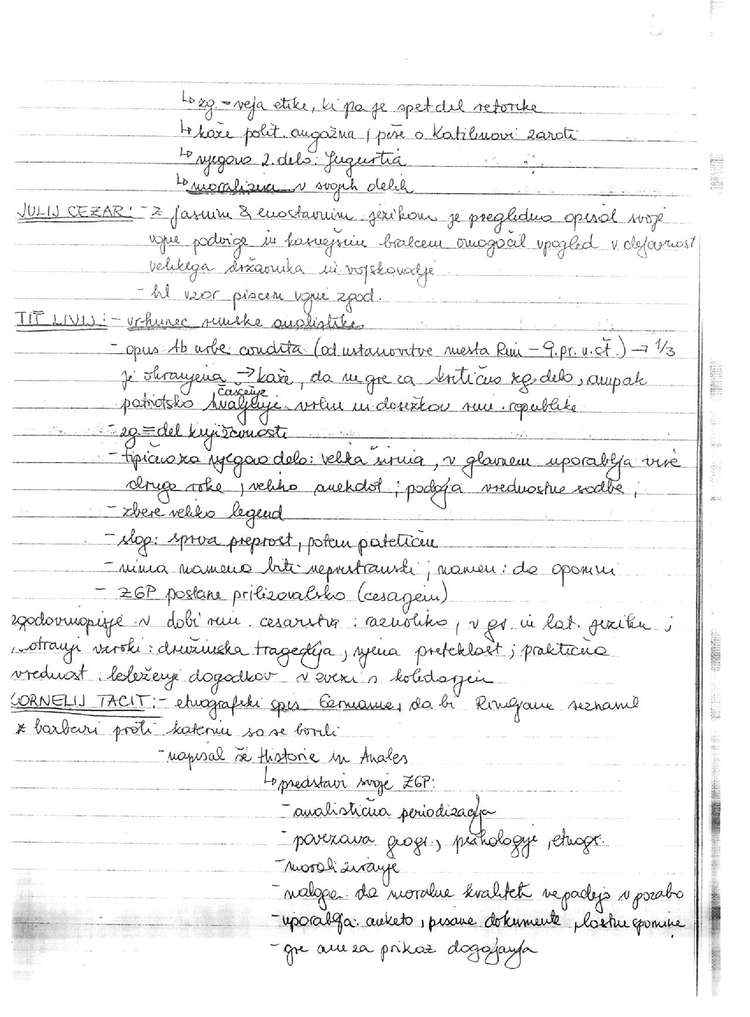 ↳ zg = veja etike, ki pa je spet del retorike
↳ kaže polit. angažma, piše o Katilinovi zaroti
↳ njegovo 2. delo: Jugurtia
↳ moralizira v svojih delih
JULIJ CEZAR: - z jasnim & enostavnim jezikom je pregledno opisal svoje
vojne podvige in kasnejšim bralcem omogočil vpogled v dejavnost
velikega državnika in vojskovodje
- bil vzor piscem vojne zgod.
TIT LIVIJ: - vrhunec rimske analistike
- opus Ab urbe condita (od ustanovitve mesta Rim – 9. pr. n. št.) → 1/3
je ohranjena → kaže, da ne gre za kritično zg. delo, ampak
čaščenje
patriotsko hvaljenje vrlin in dosežkov rim. republike
- zg = del književnosti
- tipično za njegovo delo: velika širina, v glavnem uporablja vire
druge roke, veliko anekdot; podaja vrednostne sodbe;
- zbere veliko legend
- slog: sprva preprost, potem patetičen
- nima namena biti nepristranski; namen: da opomni
- ZGP postane prilizovalsko (cesarjem)
zgodovinopisje v dobi rim. cesarstva: raznoliko, v gr. in lat. jeziku;
notranji vzroki: družinska tragedija, njena preteklost; praktična
vrednost: beleženje dogodkov v zvezi s koledarjem
CORNELIJ TACIT: - etnografski spis Germania, da bi Rimljane seznanil
z barbari proti katerim so se borili
- napisal še Historie in Anales
↳ predstavi svoje ZGP:
- analistična periodizacija
- povezava geogr., psihologije, etnogr.
- moraliziranje
- naloga: da moralne kvalitete ne padejo v pozabo
- uporablja: anketo, pisane dokumente, lastne spomine
- gre mu za prikaz dogajanja